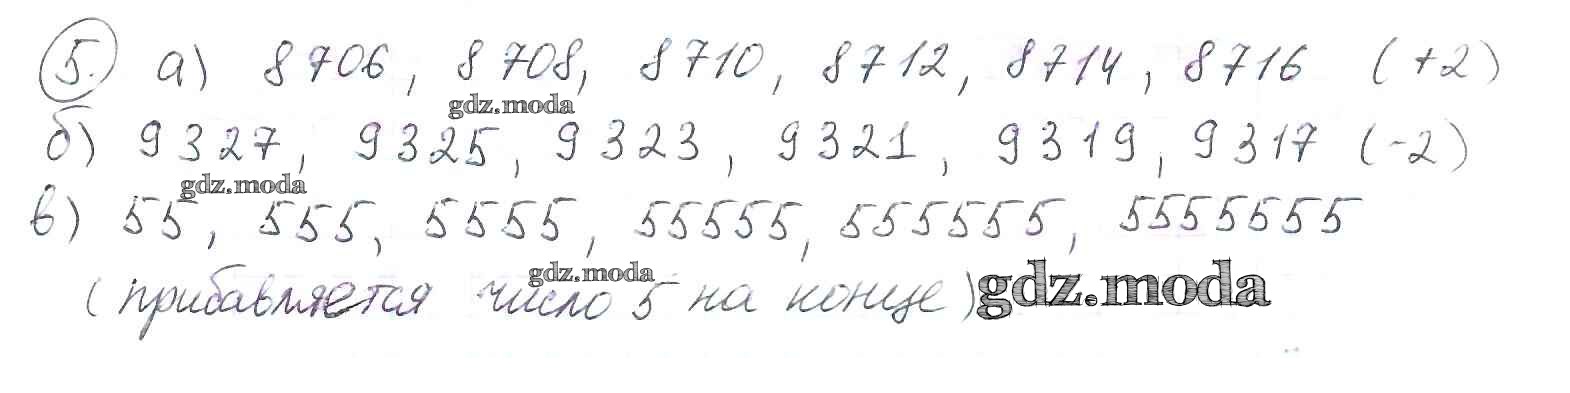 5. а) 8706, 8708, 8710, 8712, 8714, 8716 (+2)
gdz.moda
б) 9327, 9325, 9323, 9321, 9319, 9317 (-2)
gdz.moda
в) 55, 555, 5555, 55555, 555555, 5555555
gdz.moda
(прибавляется число 5 на конце) gdz.moda